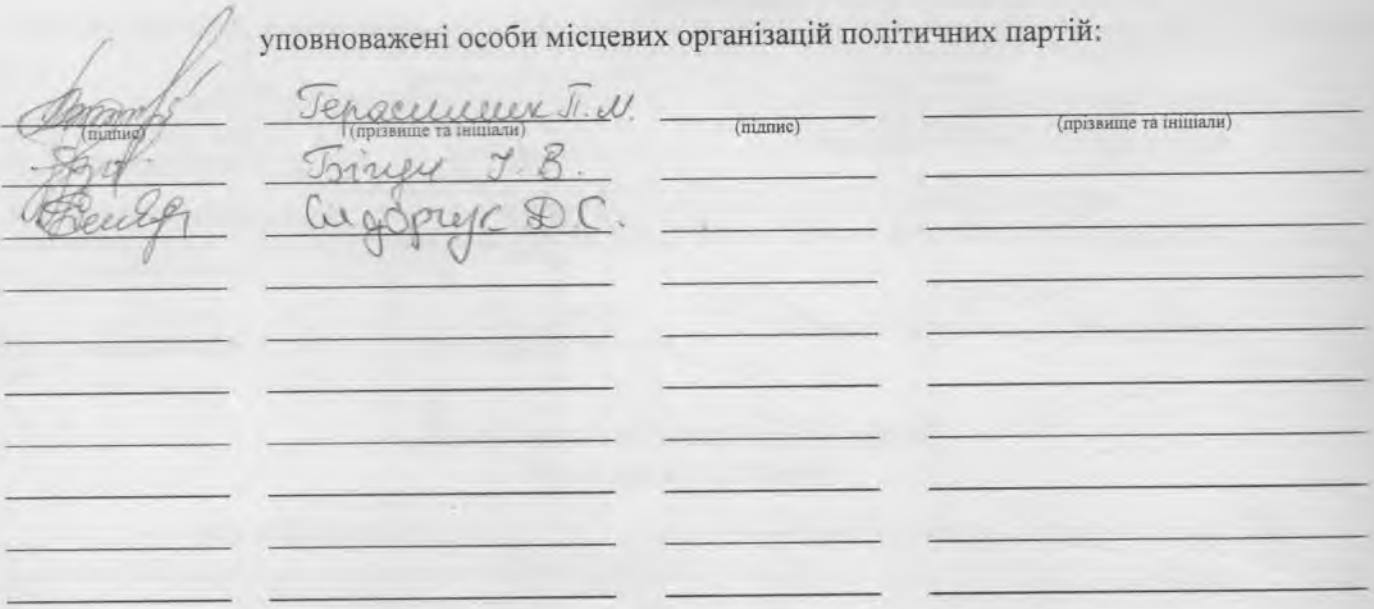 уповноважені особи місцевих організацій політичних партій:
Герасимик П.М.
(підпис) (прізвище та ініціали) (підпис) (прізвище та ініціали)
Бігун І.В.
Сидорчук Д.С.